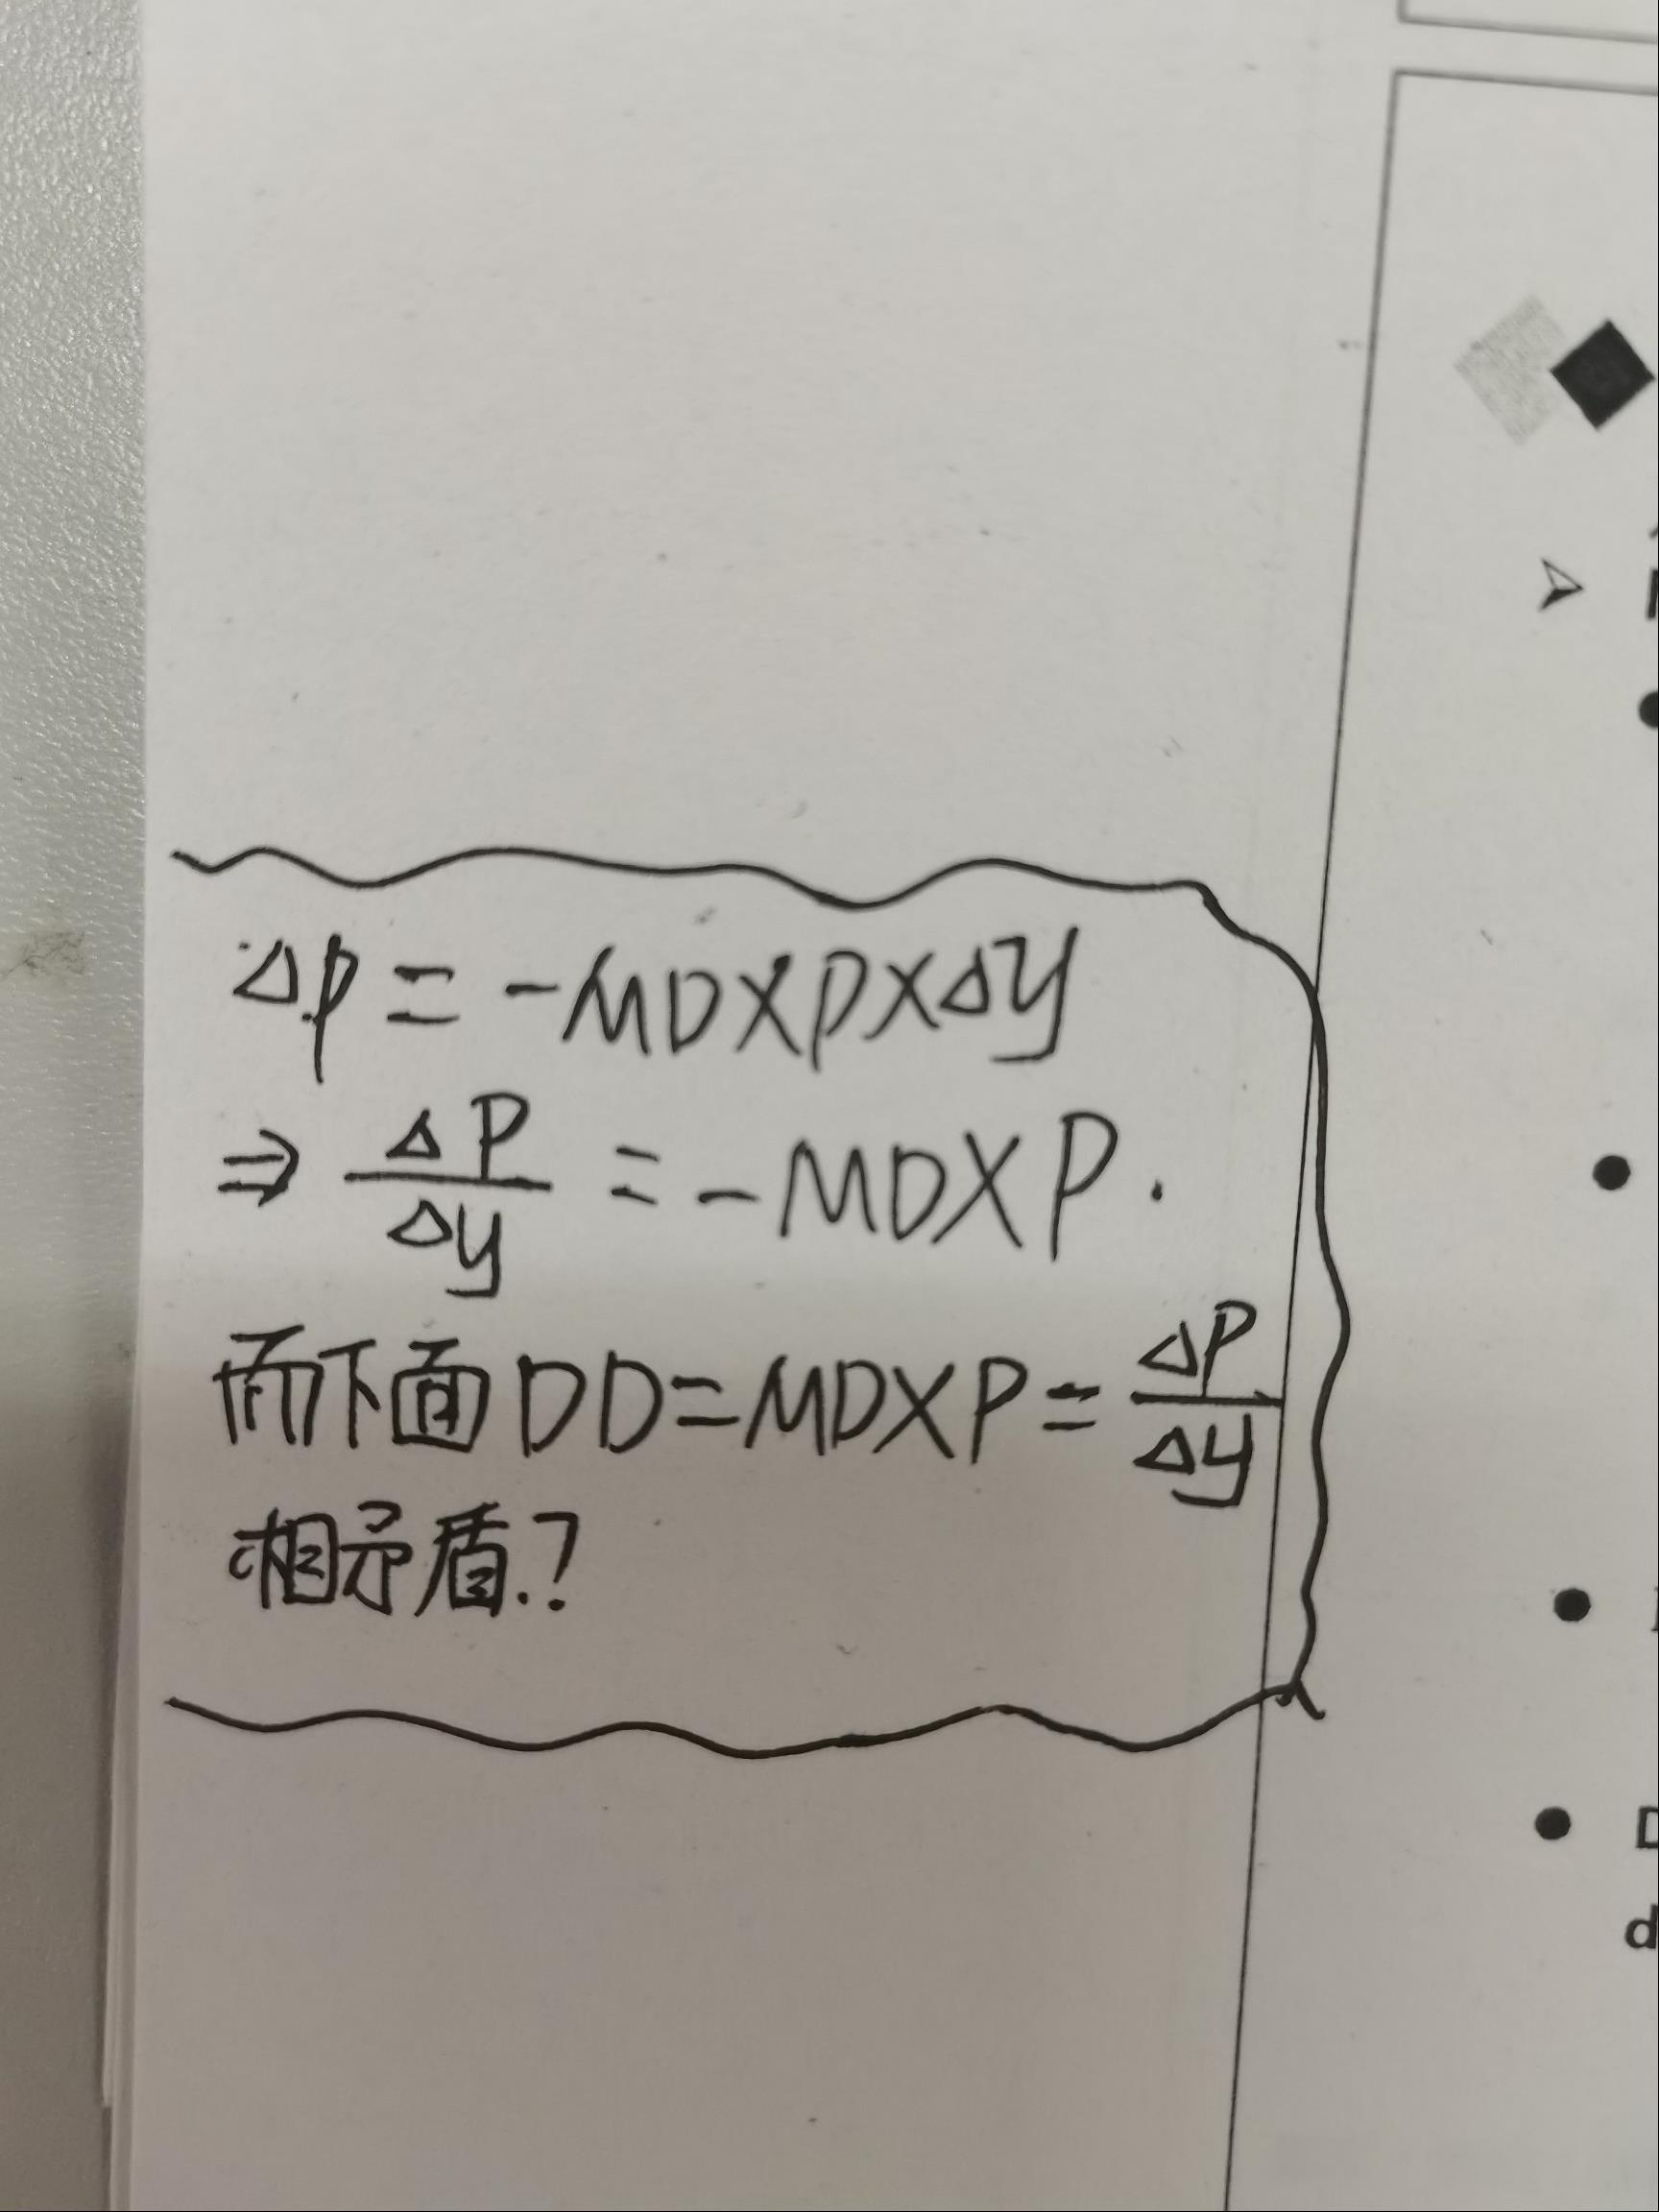 ΔP = -MD×P×Δy
⇒ ΔP/Δy = -MD×P.
而下面DD=MD×P=ΔP/Δy
相矛盾.?
D
d